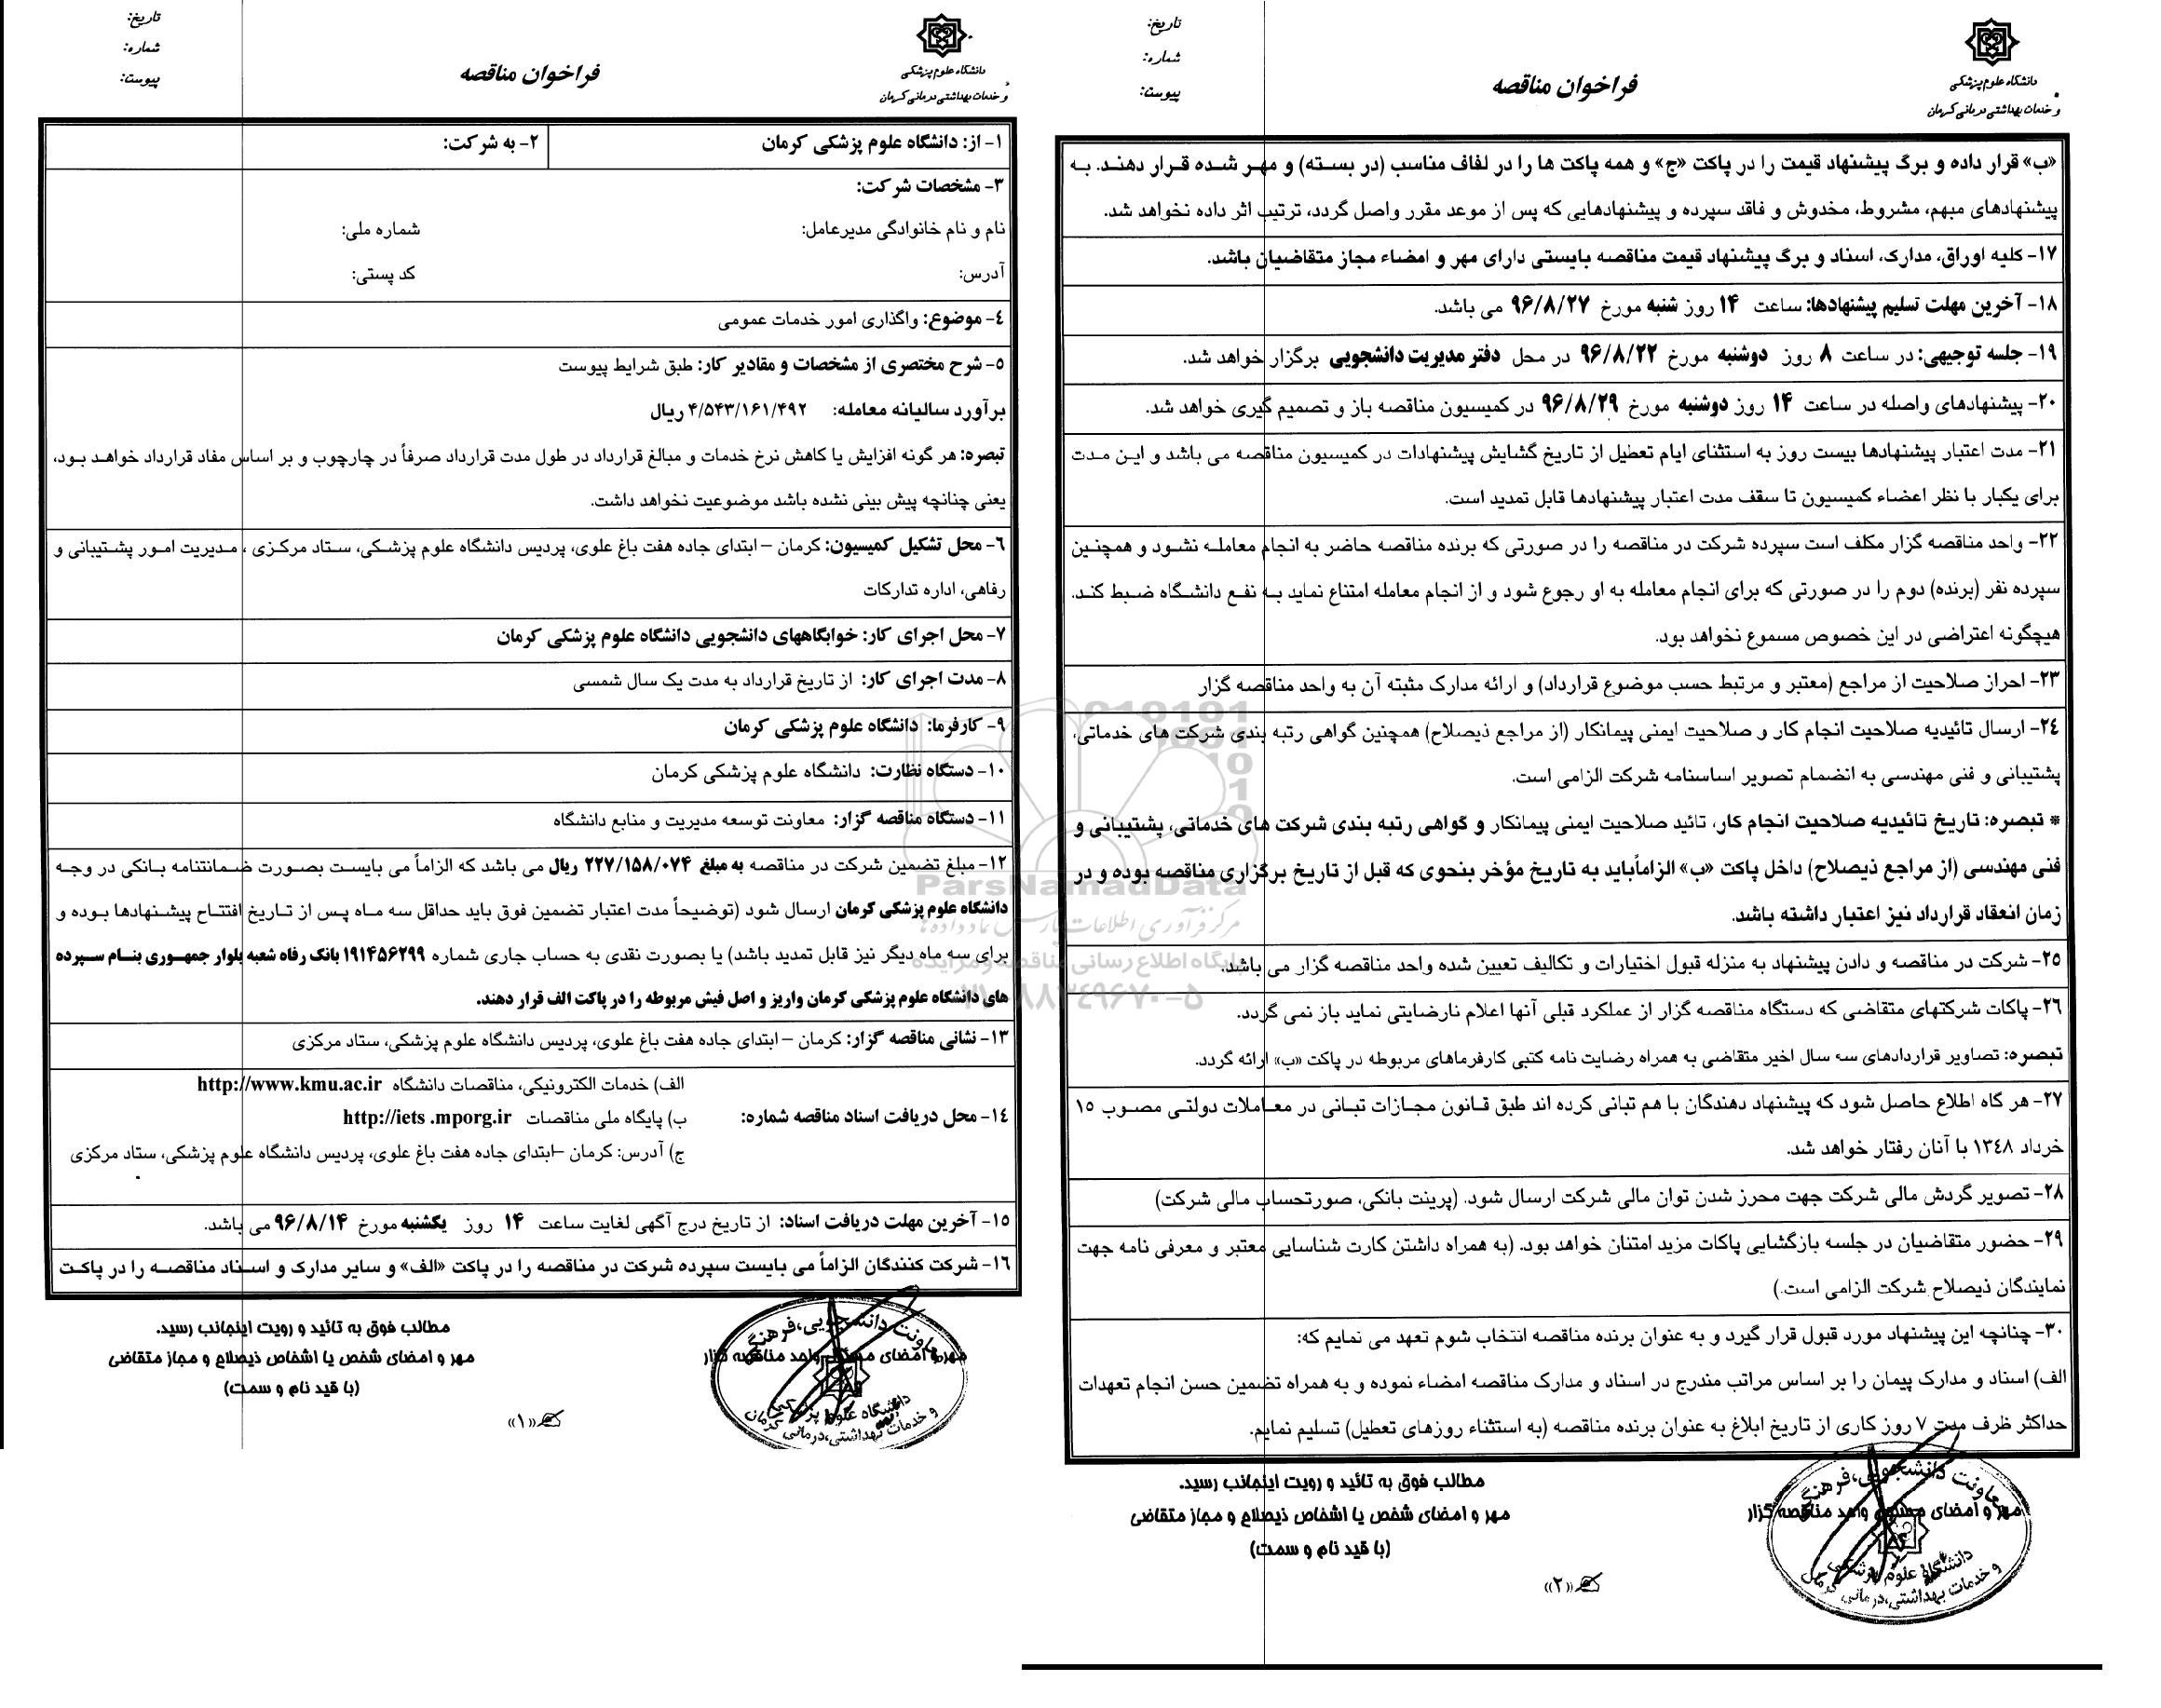 دانشگاه علوم پزشکی
و خدمات بهداشتی درمانی کرمان
فراخوان مناقصه
تاریخ:
شماره:
پیوست:
۱- از: دانشگاه علوم پزشکی کرمان
۲- به شرکت:
۳- مشخصات شرکت:
نام و نام خانوادگی مدیرعامل: شماره ملی:
آدرس: کد پستی:
٤- موضوع: واگذاری امور خدمات عمومی
۵- شرح مختصری از مشخصات و مقادیر کار: طبق شرایط پیوست
برآورد سالیانه معامله: ۴/۵۴۳/۱۶۱/۴۹۲ ریال
تبصره: هر گونه افزایش یا کاهش نرخ خدمات و مبالغ قرارداد در طول مدت قرارداد صرفاً در چارچوب و بر اساس مفاد قرارداد خواهد بود،
یعنی چنانچه پیش بینی نشده باشد موضوعیت نخواهد داشت.
۶- محل تشکیل کمیسیون: کرمان – ابتدای جاده هفت باغ علوی، پردیس دانشگاه علوم پزشکی، ستاد مرکزی ، مدیریت امور پشتیبانی و
رفاهی، اداره تدارکات
۷- محل اجرای کار: خوابگاههای دانشجویی دانشگاه علوم پزشکی کرمان
۸- مدت اجرای کار: از تاریخ قرارداد به مدت یک سال شمسی
۹- کارفرما: دانشگاه علوم پزشکی کرمان
۱۰- دستگاه نظارت: دانشگاه علوم پزشکی کرمان
۱۱- دستگاه مناقصه گزار: معاونت توسعه مدیریت و منابع دانشگاه
۱۲- مبلغ تضمین شرکت در مناقصه به مبلغ ۲۲۷/۱۵۸/۰۷۴ ریال می باشد که الزاماً می بایست بصورت ضمانتنامه بانکی در وجه
دانشگاه علوم پزشکی کرمان ارسال شود (توضیحاً مدت اعتبار تضمین فوق باید حداقل سه ماه پس از تاریخ افتتاح پیشنهادها بوده و
برای سه ماه دیگر نیز قابل تمدید باشد) یا بصورت نقدی به حساب جاری شماره ۱۹۱۴۵۶۲۹۹ بانک رفاه شعبه بلوار جمهوری بنام سپرده
های دانشگاه علوم پزشکی کرمان واریز و اصل فیش مربوطه را در پاکت الف قرار دهند.
۱۳- نشانی مناقصه گزار: کرمان – ابتدای جاده هفت باغ علوی، پردیس دانشگاه علوم پزشکی، ستاد مرکزی
۱٤- محل دریافت اسناد مناقصه شماره:
الف) خدمات الکترونیکی، مناقصات دانشگاه http://www.kmu.ac.ir
ب) پایگاه ملی مناقصات http://iets .mporg.ir
ج) آدرس: کرمان –ابتدای جاده هفت باغ علوی، پردیس دانشگاه علوم پزشکی، ستاد مرکزی
۱۵- آخرین مهلت دریافت اسناد: از تاریخ درج آگهی لغایت ساعت ۱۴ روز یکشنبه مورخ ۹۶/۸/۱۴ می باشد.
۱۶- شرکت کنندگان الزاماً می بایست سپرده شرکت در مناقصه را در پاکت «الف» و سایر مدارک و اسناد مناقصه را در پاکت
مهر و امضای مسئول واحد مناقصه گزار
مطالب فوق به تائید و رویت اینجانب رسید.
مهر و امضای شخص یا اشخاص ذیصلاح و مجاز متقاضی
(با قید نام و سمت)
معاونت دانشجویی،فرهنگی
دانشگاه علوم پزشکی
و خدمات بهداشتی،درمانی کرمان
«۱»
دانشگاه علوم پزشکی
و خدمات بهداشتی درمانی کرمان
فراخوان مناقصه
تاریخ:
شماره:
پیوست:
«ب» قرار داده و برگ پیشنهاد قیمت را در پاکت «ج» و همه پاکت ها را در لفاف مناسب (در بسته) و مهر شده قرار دهند. به
پیشنهادهای مبهم، مشروط، مخدوش و فاقد سپرده و پیشنهادهایی که پس از موعد مقرر واصل گردد، ترتیب اثر داده نخواهد شد.
۱۷- کلیه اوراق، مدارک، اسناد و برگ پیشنهاد قیمت مناقصه بایستی دارای مهر و امضاء مجاز متقاضیان باشد.
۱۸- آخرین مهلت تسلیم پیشنهادها: ساعت ۱۴ روز شنبه مورخ ۹۶/۸/۲۷ می باشد.
۱۹- جلسه توجیهی: در ساعت ۸ روز دوشنبه مورخ ۹۶/۸/۲۲ در محل دفتر مدیریت دانشجویی برگزار خواهد شد.
۲۰- پیشنهادهای واصله در ساعت ۱۴ روز دوشنبه مورخ ۹۶/۸/۲۹ در کمیسیون مناقصه باز و تصمیم گیری خواهد شد.
۲۱- مدت اعتبار پیشنهادها بیست روز به استثنای ایام تعطیل از تاریخ گشایش پیشنهادات در کمیسیون مناقصه می باشد و این مدت
برای یکبار با نظر اعضاء کمیسیون تا سقف مدت اعتبار پیشنهادها قابل تمدید است.
۲۲- واحد مناقصه گزار مکلف است سپرده شرکت در مناقصه را در صورتی که برنده مناقصه حاضر به انجام معامله نشود و همچنین
سپرده نفر (برنده) دوم را در صورتی که برای انجام معامله به او رجوع شود و از انجام معامله امتناع نماید به نفع دانشگاه ضبط کند.
هیچگونه اعتراضی در این خصوص مسموع نخواهد بود.
۲۳- احراز صلاحیت از مراجع (معتبر و مرتبط حسب موضوع قرارداد) و ارائه مدارک مثبته آن به واحد مناقصه گزار
۲٤- ارسال تائیدیه صلاحیت انجام کار و صلاحیت ایمنی پیمانکار (از مراجع ذیصلاح) همچنین گواهی رتبه بندی شرکت های خدماتی،
پشتیبانی و فنی مهندسی به انضمام تصویر اساسنامه شرکت الزامی است.
* تبصره: تاریخ تائیدیه صلاحیت انجام کار، تائید صلاحیت ایمنی پیمانکار و گواهی رتبه بندی شرکت های خدماتی، پشتیبانی و
فنی مهندسی (از مراجع ذیصلاح) داخل پاکت «ب» الزاماًباید به تاریخ مؤخر بنحوی که قبل از تاریخ برگزاری مناقصه بوده و در
زمان انعقاد قرارداد نیز اعتبار داشته باشد.
۲۵- شرکت در مناقصه و دادن پیشنهاد به منزله قبول اختیارات و تکالیف تعیین شده واحد مناقصه گزار می باشد.
۲۶- پاکات شرکتهای متقاضی که دستگاه مناقصه گزار از عملکرد قبلی آنها اعلام نارضایتی نماید باز نمی گردد.
تبصره: تصاویر قراردادهای سه سال اخیر متقاضی به همراه رضایت نامه کتبی کارفرماهای مربوطه در پاکت «ب» ارائه گردد.
۲۷- هر گاه اطلاع حاصل شود که پیشنهاد دهندگان با هم تبانی کرده اند طبق قانون مجازات تبانی در معاملات دولتی مصوب ۱۵
خرداد ۱۳٤۸ با آنان رفتار خواهد شد.
۲۸- تصویر گردش مالی شرکت جهت محرز شدن توان مالی شرکت ارسال شود. (پرینت بانکی، صورتحساب مالی شرکت)
۲۹- حضور متقاضیان در جلسه بازگشایی پاکات مزید امتنان خواهد بود. (به همراه داشتن کارت شناسایی معتبر و معرفی نامه جهت
نمایندگان ذیصلاح شرکت الزامی است.)
۳۰- چنانچه این پیشنهاد مورد قبول قرار گیرد و به عنوان برنده مناقصه انتخاب شوم تعهد می نمایم که:
الف) اسناد و مدارک پیمان را بر اساس مراتب مندرج در اسناد و مدارک مناقصه امضاء نموده و به همراه تضمین حسن انجام تعهدات
حداکثر ظرف مدت ۷ روز کاری از تاریخ ابلاغ به عنوان برنده مناقصه (به استثناء روزهای تعطیل) تسلیم نمایم.
مهر و امضای مسئول واحد مناقصه گزار
مطالب فوق به تائید و رویت اینجانب رسید.
مهر و امضای شخص یا اشخاص ذیصلاح و مجاز متقاضی
(با قید نام و سمت)
معاونت دانشجویی،فرهنگی
دانشگاه علوم پزشکی
و خدمات بهداشتی،درمانی کرمان
«۲»
ParsNamadData
مرکز فرآوری اطلاعات پارس نماد داده ها
پایگاه اطلاع رسانی مناقصه و مزایده